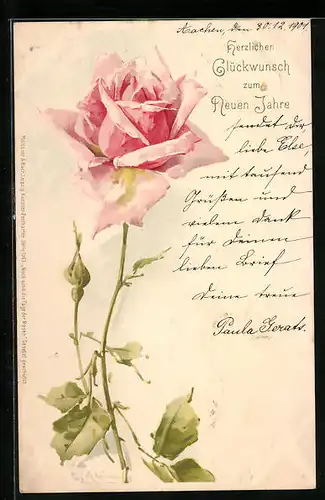 Aachen, den 30.12.1901
Herzlichen
Glückwunsch
zum
Neuen Jahre
sendet dir
liebe Else,
mit tausend
Grüßen und
vielem Dank
für Deinen
lieben Brief
Deine treue
Paula Gerats.